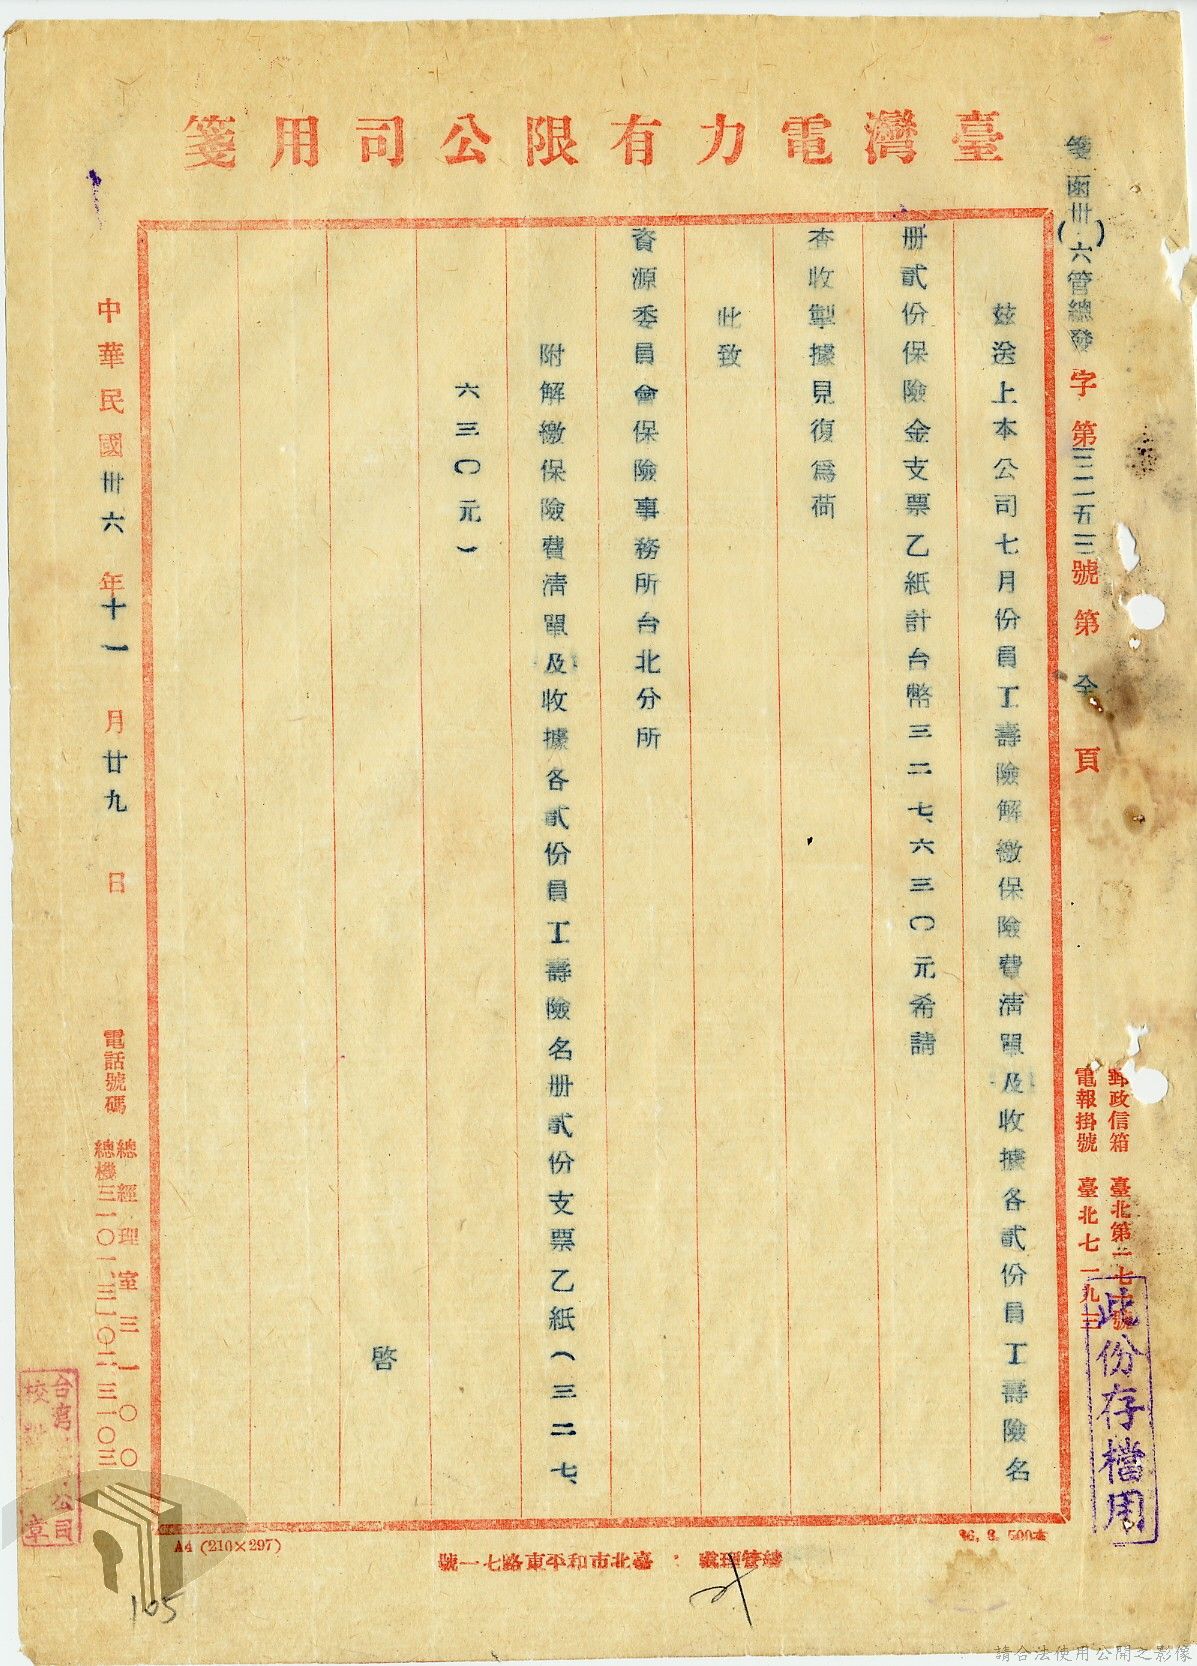 臺灣電力有限公司用箋
箋函(卅六)管總發字第三二一五三號第全頁
郵政信箱 臺北第一七一號
電報掛號 臺北七一九三
此份存檔用
茲送上本公司七月份員工壽險解繳保險費清單及收據各貳份員工壽險名
册貳份保險金支票乙紙計台幣三二七、六三〇元希請
查收掣據見復爲荷
此致
資源委員會保險事務所台北分所
附解繳保險費清單及收據各貳份員工壽險名册貳份支票乙紙(三二七、
六三〇元)
啓
中華民國卅六年十一月廿九日
電話號碼 總經理室三一〇〇
總機三一〇一、三一〇二、三一〇三
台灣 公司
校 章
A4 (210×297)
36. 8. 500本
總管理處:臺北市和平東路七一號
105
請合法使用公開之影像